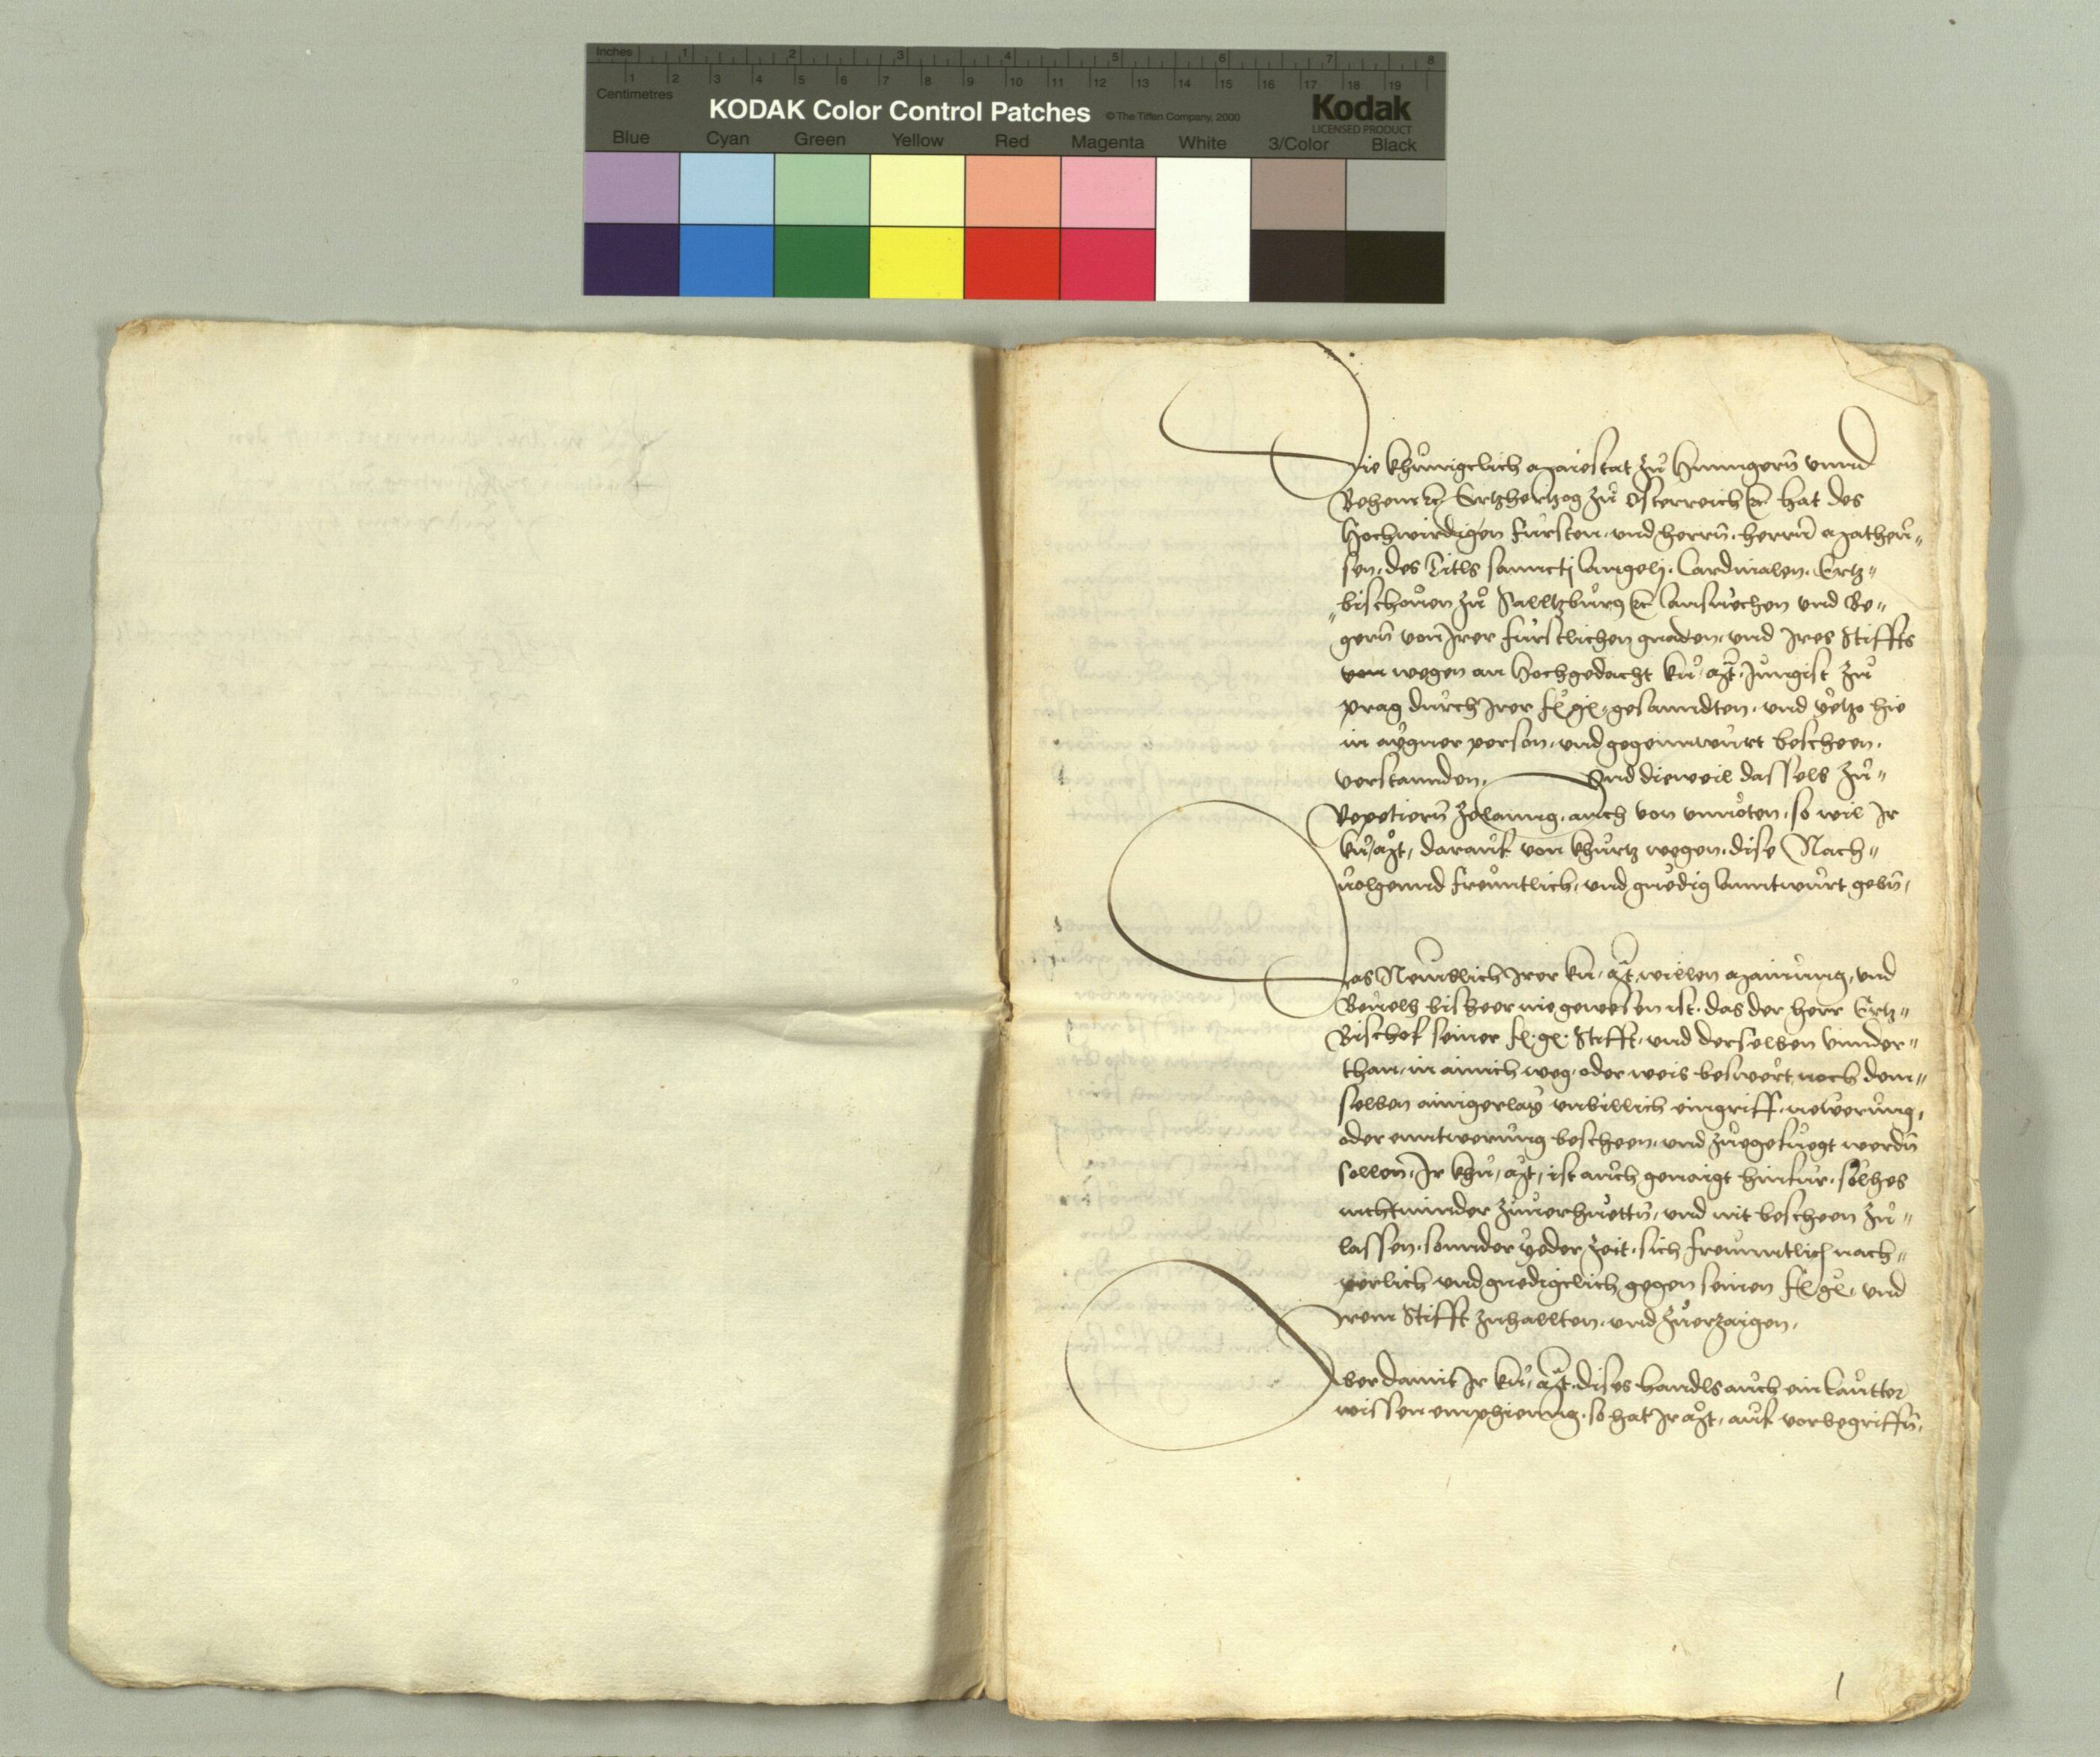 Inches 1 2 3 4 5 6 7 8
1 2 3 4 5 6 7 8 9 10 11 12 13 14 15 16 17 18 19
Centimetres
KODAK Color Control Patches © The Tiffen Company, 2000 Kodak
LICENSED PRODUCT
Blue Cyan Green Yellow Red Magenta White 3/Color Black
Die khünigclich Maiestat zů Hunngern̄ vnnd
Behem ꝛc Ertzhertzog zů Osterreich ꝛc hat des
Hochwirdigen fürsten, vnd herrn̄, herrn̄ Matheu„
sen, des Titls sanncti Angeli, Cardinalen, Ertz„
„bischouen zů Salltzburg ꝛc Ansuechen vnd Be„
gern̄ von Irer fürstlichen gnaden, vnd Ires Stiffts
von wegen an Hochgedacht kü. Mt. Jungist zů
prag durch Irer fl. gl. gesanndten, vnd yetzo hie
in aÿgner person, vnd gegennwürt bescheen,
verstannden, Vnd dieweil dasselb zů„
Repetiern̄ zelanng, auch von vnnöten, so wil Ir
kü. Mt. darauf von khürtz wegen, dise Nach„
uolgennd freuntlich, vnd gnedig Anntwurt gebn̄,
Das Nemblich Irer kü. Mt. willen Mainung, vnd
Beuelh bisheer nie gewesen ist, das der herr Ertz„
Bischof seiner fl. gl. Stifft, vnd derselben vnnder„
than, in ainich weg, oder weis beswert, noch dem„
selben ainigerlaÿ vnbillich eingriff, newerung,
oder enntwerung bescheen, vnd zůegefuegt werdn̄
sollen, Ir khü. Mt. ist auch genaigt hinfür, solhes
nichtminder zuuerhuettn̄, vnd nit bescheen zů„
lassen, sonnder yeder zeit, sich freunntlich nach„
perlich vnd gnedigclich gegen seinen fl. gl. vnd
Irem Stifft zuhallten, vnd zůerzaigen,
Aber damit Ir kü. Mt. dises handls auch ein lautter
wissen emphienng, so hat Ir Mt. auf vorbegriffn̄,
1